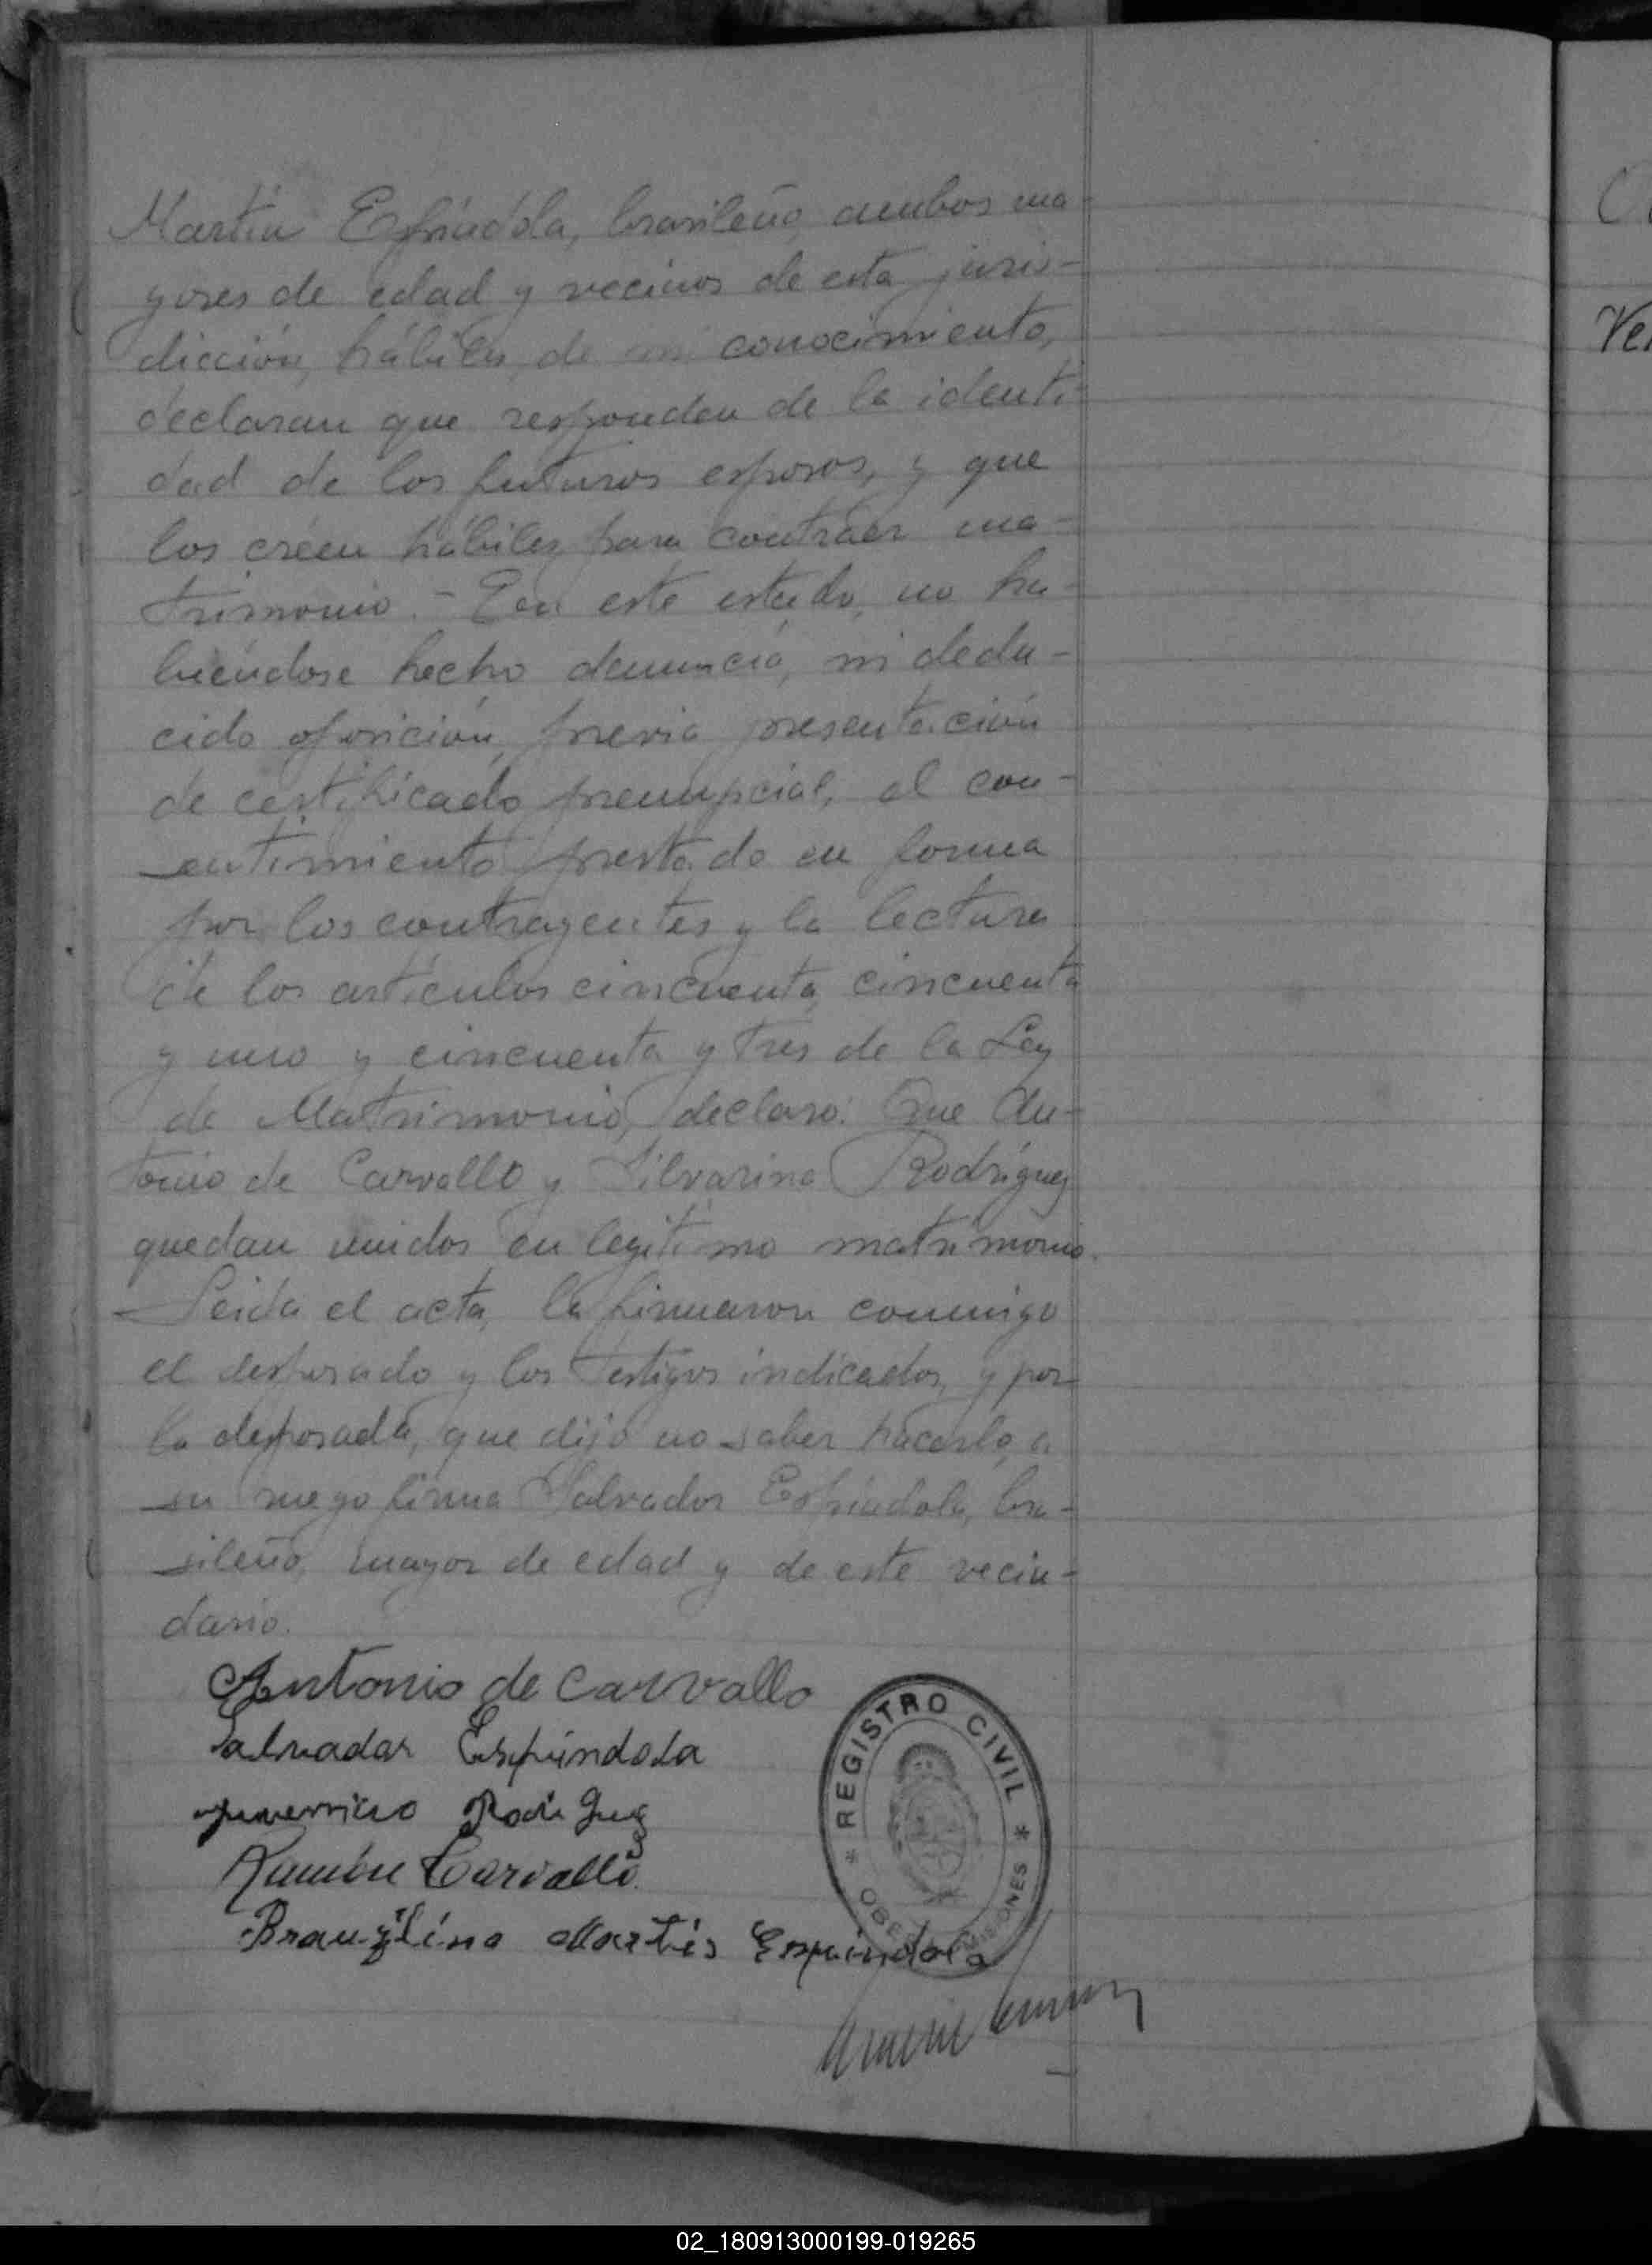 Martín Espíndola, brasileño, ambos ma-
yores de edad y vecinos de esta juris-
dicción, hábiles, de mi conocimiento,
declaran que responden de la identi-
dad de los futuros esposos, y que
los créen hábiles para contraer ma-
trimonio.- En este estado, no ha-
biéndose hecho denuncia, ni dedu-
cido oposición, previa presentación
de certificado prenupcial, al con-
sentimiento prestado en forma
por los contrayentes y la lectura
de los artículos cincuenta, cincuenta
y uno y cincuenta y tres de la Ley
de Matrimonio, declaro: Que An-
tonio de Carvallo y Silvarina Rodríguez
quedan unidos en legítimo matrimonio.
Leida el acta, la firmaron conmigo
el desposado y los testigos indicados, y por
la desposada, que dijo no saber hacerlo, a
su ruego firma Salvador Espíndola, bra-
sileño, mayor de edad y de este vecin-
dario.
Antonio de Carvallo
Salvador Espíndola
Rodriguez
Ramón Carvallo
Martín Espindola
* REGISTRO CIVIL *
OBERÁ MISIONES
Ve
02_180913000199-019265